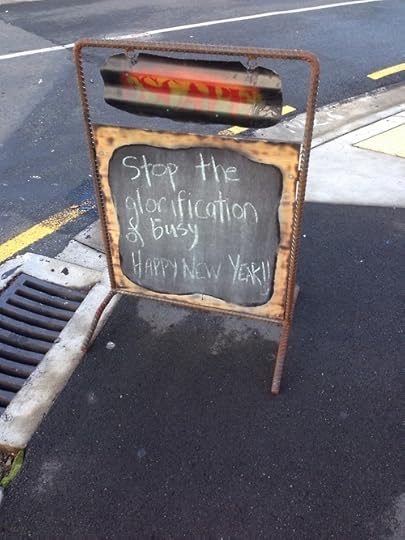 Stop the
glorification
of busy
HAPPY NEW YEAR!!